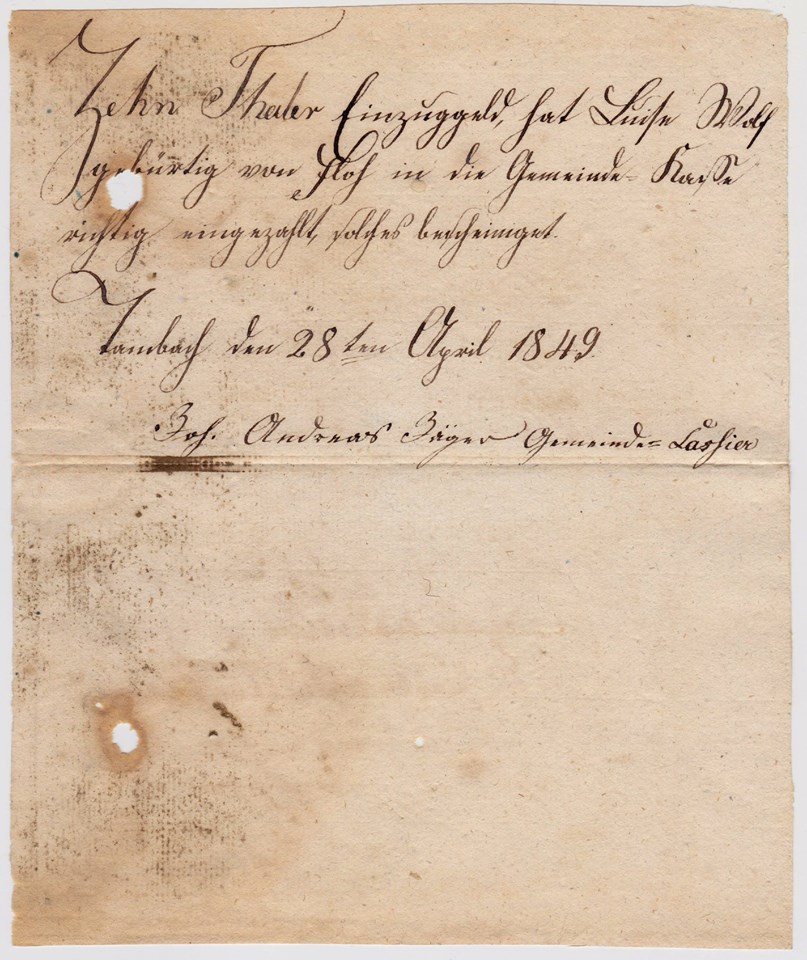 Zehn Thaler Einzuggeld, hat Luise Wolf
gebürtig von Floh in die Gemeinde= Kasse
richtig eingezahlt, solches bescheiniget.
Tambach den 28ten April 1849.
Joh. Andreas Jäger Gemeinde= Cassier